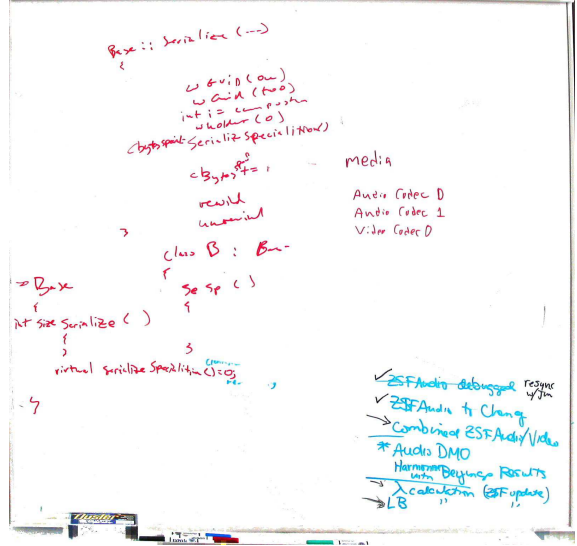 Base :: Serialize (---)
{
w GUID (one)
w Guid (two)
int i =
wholder (0)
Serialize Specialition()
cBytes += ;
rewind
}
class B : Base
{
Se Sp ( )
{
}
Base
{
int size Serialize ( )
{
}
virtual Serialize Specialition ()=0;
}
media
Audio Codec 0
Audio Codec 1
Video Codec 0
✓ ZSFAudio debugged resync w/Jim
✓ ZSFAudio to Chang
→ Combined ZSFAudio/Video
* Audio DMO
with Beginage Results
→ λ calculation (ZSF update)
→ LB " "